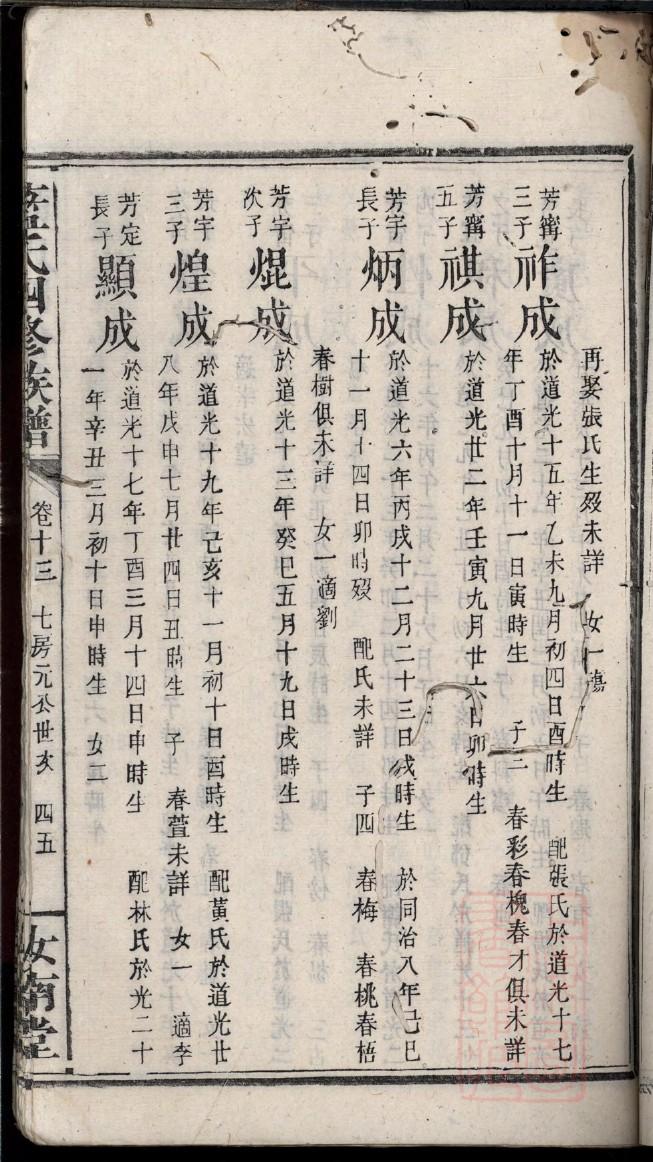 再娶張氏生殁未詳 女一殤
芳甯三子 祚成 於道光十五年乙未九月初四日酉時生 配張氏於道光十七
年丁酉十月十一日寅時生 子三 春彩春槐春才俱未詳
芳甯五子 祺成 於道光廿二年壬寅九月廿六日卯時生
芳字長子 炳成 於道光六年丙戌十二月二十三日戌時生 於同治八年己巳
十一月十四日卯時殁 配氏未詳 子四 春梅 春桃春梧
春樹俱未詳 女一適劉
芳字次子 焜成 於道光十三年癸巳五月十九日戌時生
芳字三子 煌成 於道光十九年己亥十一月初十日酉時生 配黃氏於道光廿
八年戊申七月廿四日丑時生 子 春萱未詳 女一 適李
芳定長子 顯成 於道光十七年丁酉三月十四日申時生 配林氏於光二十
一年辛丑三月初十日申時生 女二
氏四修族譜 卷十三 七房元公世亥 四五 汝南堂